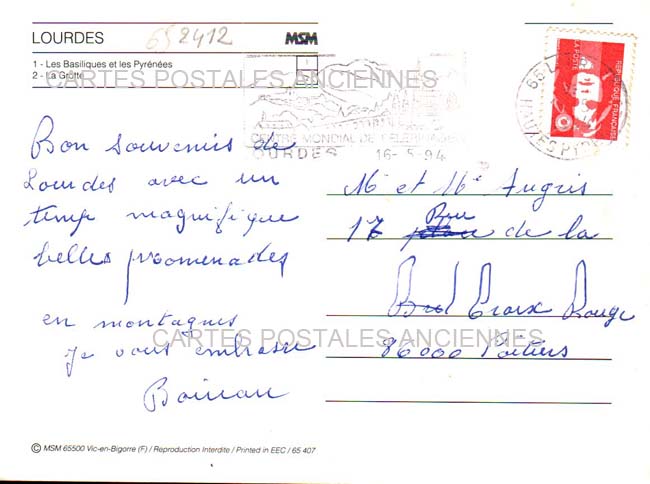 LOURDES
652412
MSM
1 - Les Basiliques et les Pyrénées
2 - La Grotte
CARTES POSTALES ANCIENNES
CENTRE MONDIAL DE PELERINAGE
LOURDES 16-5-94
REPUBLIQUE FRANCAISE
LA POSTE
Bon souvenirs de
Lourdes avec un
temp magnifique
belles promenades
en montagnes
je vous embrasse
Mr et Me Augris
17 Rue de la
Croix Rouge
86000 Poitiers
CARTES POSTALES ANCIENNES
© MSM 65500 Vic-en-Bigorre (F) / Reproduction Interdite / Printed in EEC / 65 407